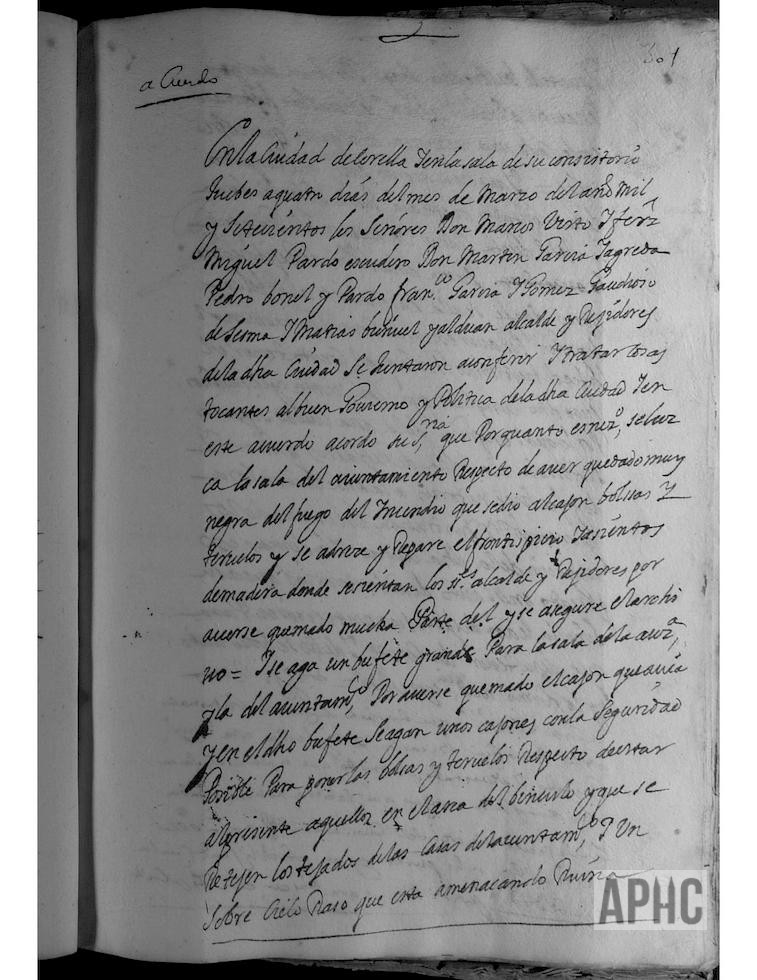 301
aCuerdo
En la Ciudad de Corella Y en la sala de su consistorio
Juebes a quatro dias del mes de Marzo del año mil
y Seteciéntos los Senóres Don Marcos Virto Y ferz
Miguel Pardo escudero Don Martin Garcia Sagreda
Pedro bonel y Pardo fran.co Garcia Y Gomez Gaudioso
de Sesma Y Matias buñuel y alduan alcalde y Rejidores
de la dha Ciudad Se Juntaron a conferir Y tratar Cosas
tocantes al buen Gouierno y Politica de la dha Ciudad Y en
este acuerdo acordo su S.ria que Por quanto es nezo, se luz
ca la sala del aiuntamiento Respecto de auer quedado muy
negra del fuego del Yncendio que se dio al cajon bolssas Y
teruelos y se adreze y Repare el frontispicio Y asientos
de madera donde se sientan los ss.res alcalde y Rejidores por
auerse quemado mucha Parte del y se asegure el archi
uo = Y se aga un bufete grande Para la sala de la
y la del aiuntam.to, Por auerse quemado el cajon que auia
y en el dho bufete Se agan unos cajones con la Seguridad
Posible Para poner las bolsas y teruelos Respecto de estar
al presente aquellos en el arca del binculo y que se
Retejen los tejados de las Casas del aiuntam.to, Y Un
Sobre Cielo Raso que esta amenacando Ruina
APHC